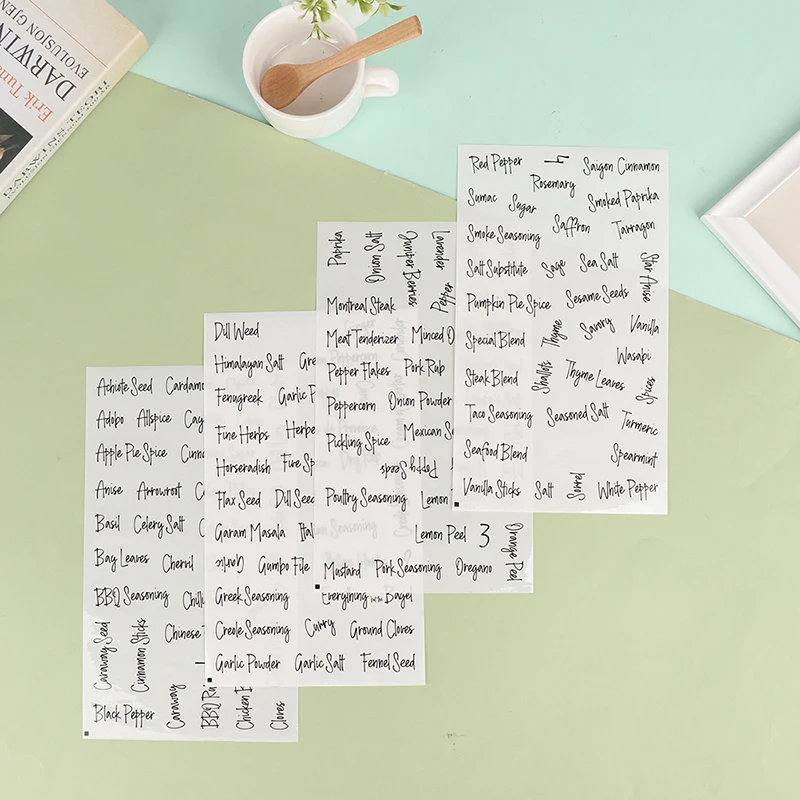 DARWIN
EVOLUSJON GJEN
Erik Tuna
Red Pepper 4 Saigon Cinnamon
Rosemary
Sumac Sugar Smoked Paprika
Smoke Seasoning Saffron Tarragon
Salt Substitute Sage Sea Salt Star Anise
Pumpkin Pie Spice Sesame Seeds
Special Blend Thyme Savory Vanilla
Wasabi
Steak Blend Shallots Thyme Leaves Spices
Taco Seasoning Seasoned Salt Turmeric
Seafood Blend Spearmint
Vanilla Sticks Salt Sorrel White Pepper
Paprika Onion Salt Juniper Berries Lavender
Pepper
Montreal Steak
Meat Tenderizer Minced O
Pepper Flakes Pork Rub
Peppercorn Onion Powder
Pickling Spice Mexican S
Poppy Seeds
Poultry Seasoning Lemon
Lemon Peel 3 Orange Peel
Mustard Pork Seasoning Oregano
Dill Weed
Himalayan Salt Gre
Fenugreek Garlic P
Fine Herbs Herbe
Horseradish Fire Sp
Flax Seed Dill Seed
Garam Masala Ital
Garlic Gumbo File
Greek Seasoning Everything but the Bagel
Creole Seasoning Curry Ground Cloves
Garlic Powder Garlic Salt Fennel Seed
Achiote Seed Cardamo
Adobo Allspice Cay
Apple Pie Spice Cinn
Anise Arrowroot C
Basil Celery Salt C
Bay Leaves Chervil
BBQ Seasoning Chili
Caraway Seed Cinnamon Sticks Chinese
Black Pepper Caraway BBQ Ru Chicken B Cloves